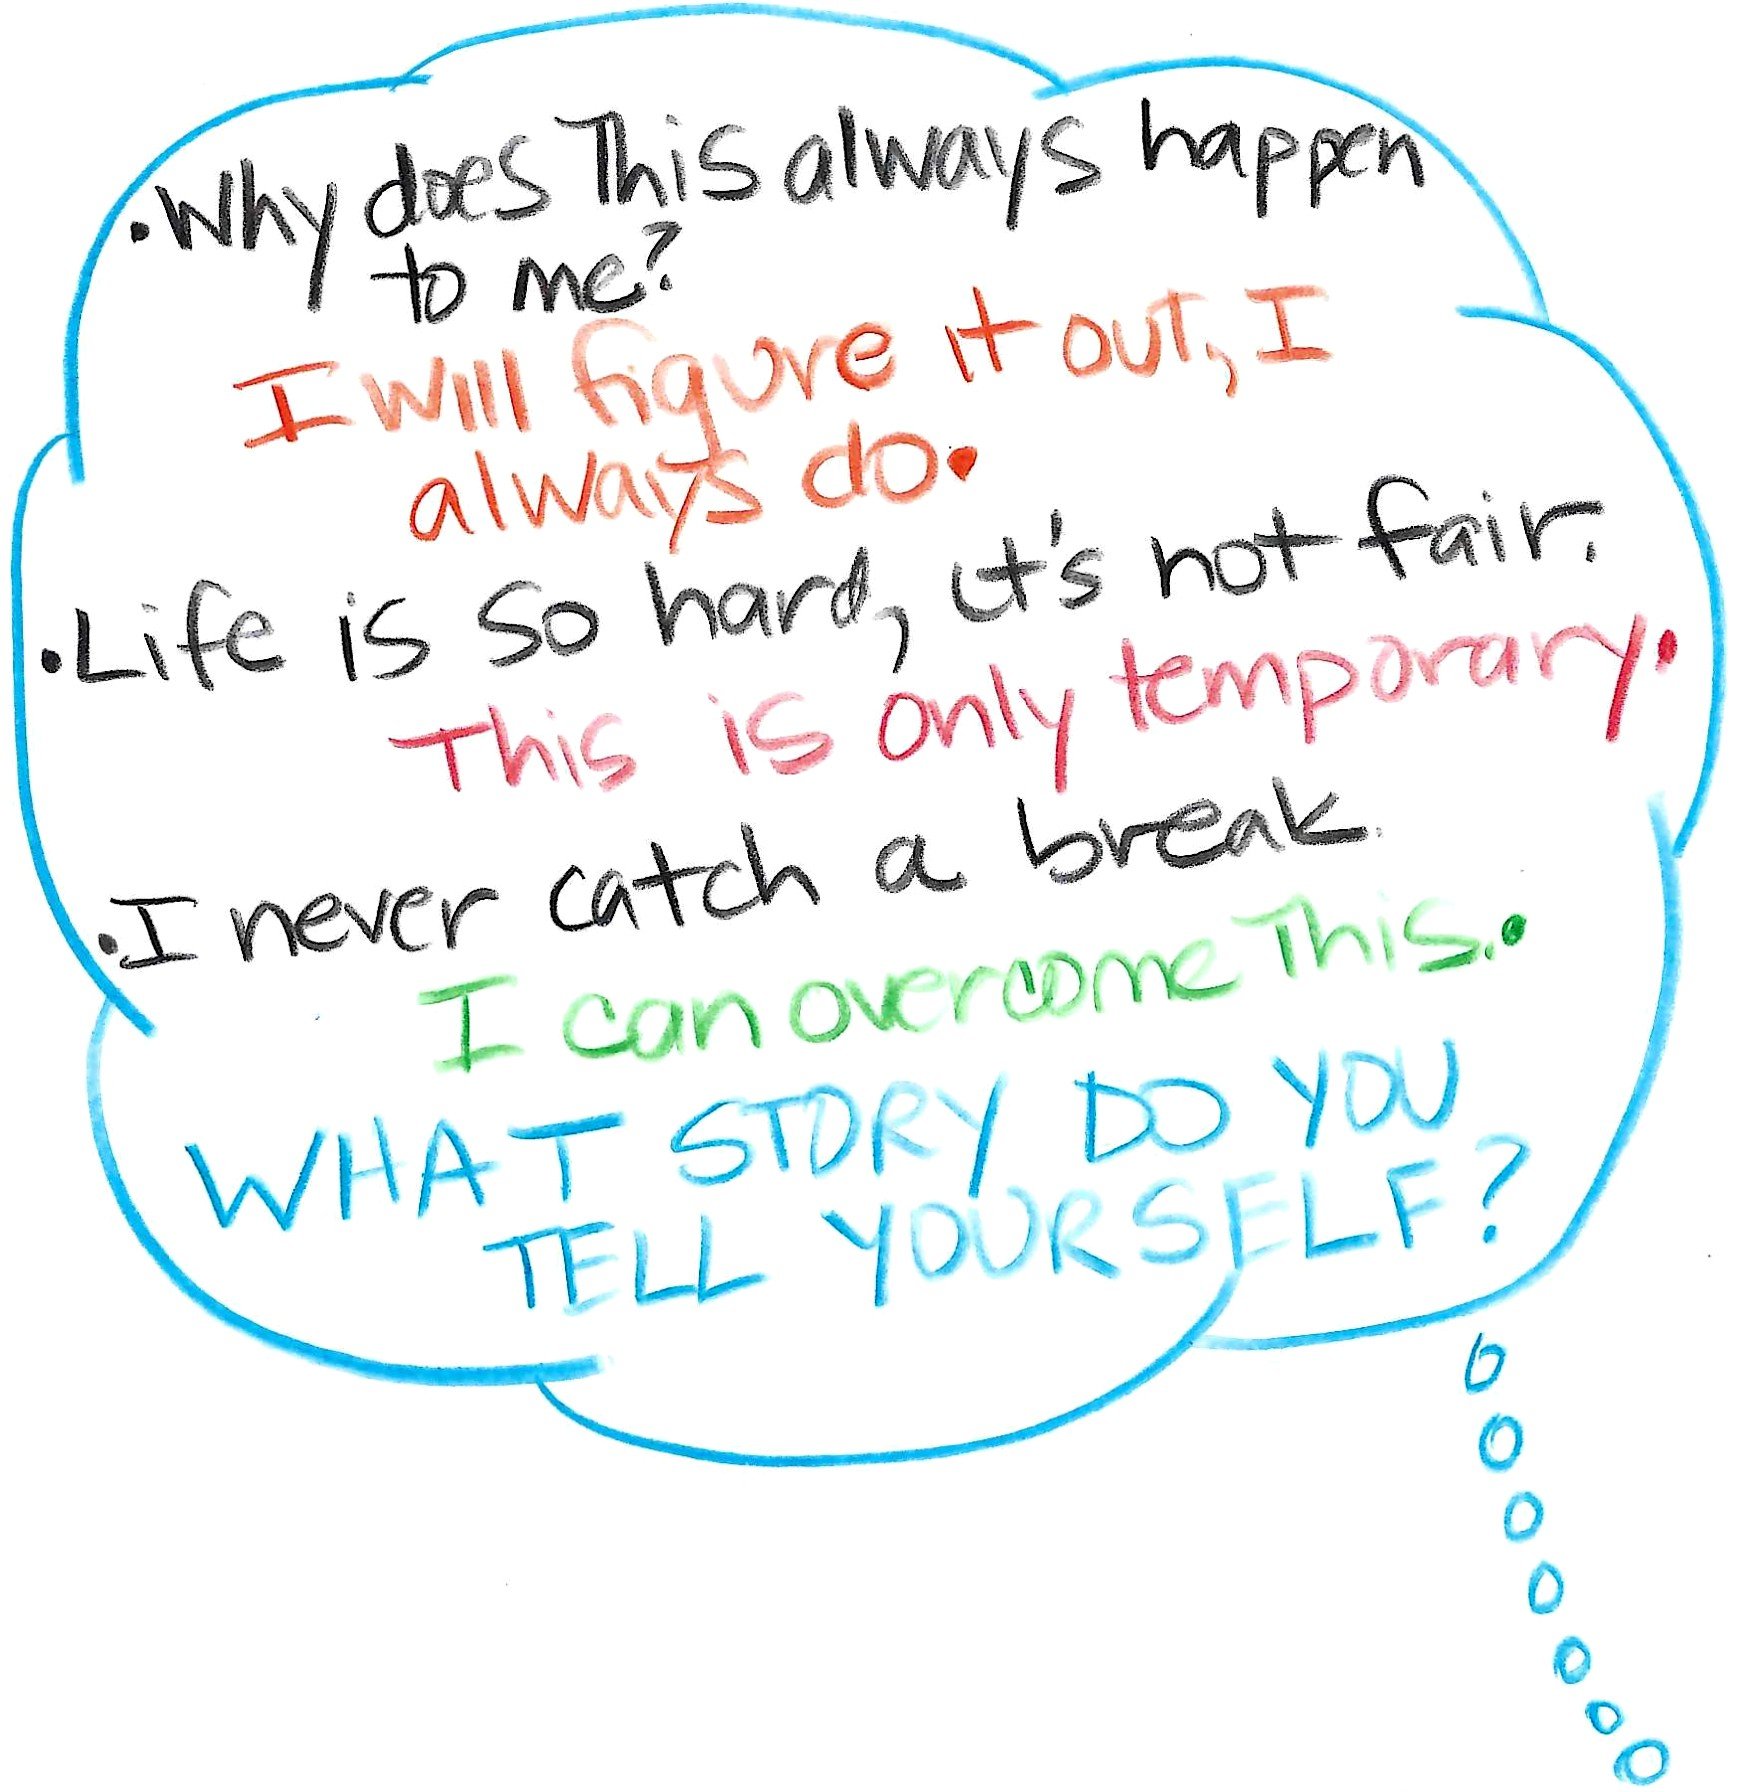 •Why does This always happen
to me?
I will figure it out, I
always do.
•Life is so hard, it's not fair.
This is only temporary.
•I never catch a break.
I can overcome This..
WHAT STORY DO YOU
TELL YOURSELF?